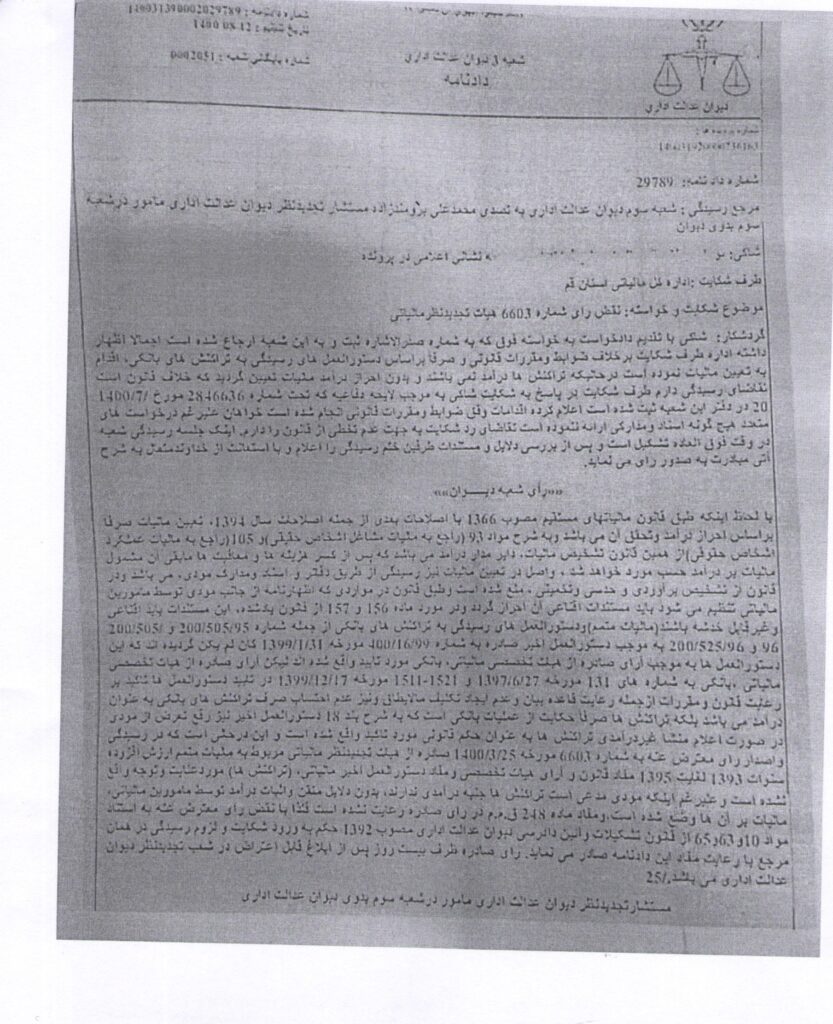 شماره دادنامه : 140031390002029789
تاریخ تنظیم : 1400/08/12
شماره بایگانی شعبه : 0002051
شعبه 3 دیوان عدالت اداری
دادنامه
دیوان عدالت اداری
شماره پرونده ها :
شماره دادنامه: 29789
مرجع رسیدگی : شعبه سوم دیوان عدالت اداری به تصدی محمدعلی برومندزاده مستشار تجدیدنظر دیوان عدالت اداری مامور درشعبه
سوم بدوی دیوان
شاکی: نشانی اعلامی در پرونده
طرف شکایت :اداره کل مالیاتی استان قم
موضوع شکایت و خواسته: نقض رای شماره 6603 هیات تجدیدنظرمالیاتی
گردشکار: شاکی با تقدیم دادخواست به خواسته فوق که به شماره صدرالاشاره ثبت و به این شعبه ارجاع شده است اجمالا اظهار
داشته اداره طرف شکایت برخلاف ضوابط ومقررات قانونی و صرفا براساس دستورالعمل های رسیدگی به تراکنش های بانکی، اقدام
به تعیین مالیات نموده است درحالیکه تراکنش ها درآمد نمی باشند و بدون احراز درآمد مالیات تعیین گردید که خلاف قانون است
تقاضای رسیدگی دارم طرف شکایت در پاسخ به شکایت شاکی به موجب لایحه دفاعیه که تحت شماره 2846636 مورخ 1400/7/
20 در دفتر این شعبه ثبت شده است اعلام کرده اقدامات وفق ضوابط ومقررات قانونی انجام شده است خواهان علیرغم درخواست های
متعدد هیچ گونه اسناد ومدارکی ارائه ننموده است تقاضای رد شکایت به جهت عدم تخطی از قانون را دارم. اینک جلسه رسیدگی شعبه
در وقت فوق العاده تشکیل است و پس از بررسی دلایل و مستندات طرفین ختم رسیدگی را اعلام و با استعانت از خداوندمتعال به شرح
آتی مبادرت به صدور رای می نماید.
««رأی شعبه دیـــوان»»
با لحاظ اینکه طبق قانون مالیاتهای مستقیم مصوب 1366 با اصلاحات بعدی از جمله اصلاحات سال 1394، تعیین مالیات صرفا
براساس احراز درآمد وتحقق آن می باشد وبه شرح مواد 93 (راجع به مالیات مشاغل اشخاص حقیقی)و 105(راجع به مالیات عملکرد
اشخاص حقوقی)از همین قانون تشخیص مالیات، دایر مدار درآمد می باشد که پس از کسر هزینه ها و معافیت ها مابقی آن مشمول
مالیات بر درآمد حسب مورد خواهد شد . واصل در تعیین مالیات نیز رسیدگی از طریق دفاتر و اسناد ومدارک مودی، می باشد ودر
قانون از تشخیص برآوردی و حدسی وتخمینی ، منع شده است وطبق قانون در مواردی که اظهارنامه از جانب مودی توسط مامورین
مالیاتی تنظیم می شود باید مستندات اقناعی آن احراز گردد ودر مورد ماده 156 و 157 از قانون یادشده، این مستندات باید اقناعی
وغیرقابل خدشه باشند(مالیات متمم)ودستورالعمل های رسیدگی به تراکنش های بانکی از جمله شماره 200/505/95 و 200/505/
96 و 200/525/96 به موجب دستورالعمل اخیر صادره به شماره 400/16/99 مورخه 1399/1/31 کان لم یکن گردیده اند که این
دستورالعمل ها به موجب آرای صادره از هیات تخصصی مالیاتی، بانکی مورد تایید واقع شده اند لیکن آرای صادره از هیات تخصصی
مالیاتی ،بانکی به شماره های 131 مورخه 1397/6/27 و 1521-1511 مورخه 1399/12/17 در تایید دستورالعمل ها تاکید بر
رعایت قانون ومقررات ازجمله رعایت قاعده بیان وعدم ایجاد تکلیف مالایطاق ونیز عدم احتساب صرف تراکنش های بانکی به عنوان
درآمد می باشد بلکه تراکنش ها صرفا حکایت از عملیات بانکی است که به شرح بند 18 دستورالعمل اخیر نیز رفع تعرض از مودی
در صورت اعلام منشا غیردرآمدی تراکنش ها به عنوان حکم قانونی مورد تاکید واقع شده است و این درحالی است که در رسیدگی
واصدار رای معترض عنه به شماره 6603 مورخه 1400/3/25 صادره از هیات تجدیدنظر مالیاتی مربوط به مالیات متمم ارزش افزوده
سنوات 1393 لغایت 1395 مفاد قانون و آرای هیات تخصصی ومفاد دستورالعمل اخیر مالیاتی، (تراکنش ها) موردعنایت وتوجه واقع
نشده است و علیرغم اینکه مودی مدعی است تراکنش ها جنبه درآمدی ندارند، بدون دلایل متقن واثبات درآمد توسط مامورین مالیاتی،
مالیات بر آن ها وضع شده است،ومفاد ماده 248 ق.م.م در رای صادره رعایت نشده است لذا با نقض رای معترض عنه به استناد
مواد 10و63و65 از قانون تشکیلات وآئین دادرسی دیوان عدالت اداری مصوب 1392 حکم به ورود شکایت و لزوم رسیدگی در همان
مرجع با رعایت مفاد این دادنامه صادر می نماید. رای صادره ظرف بیست روز پس از ابلاغ قابل اعتراض در شعب تجدیدنظر دیوان
عدالت اداری می باشد./25
مستشارتجدیدنظر دیوان عدالت اداری مامور درشعبه سوم بدوی دیوان عدالت اداری